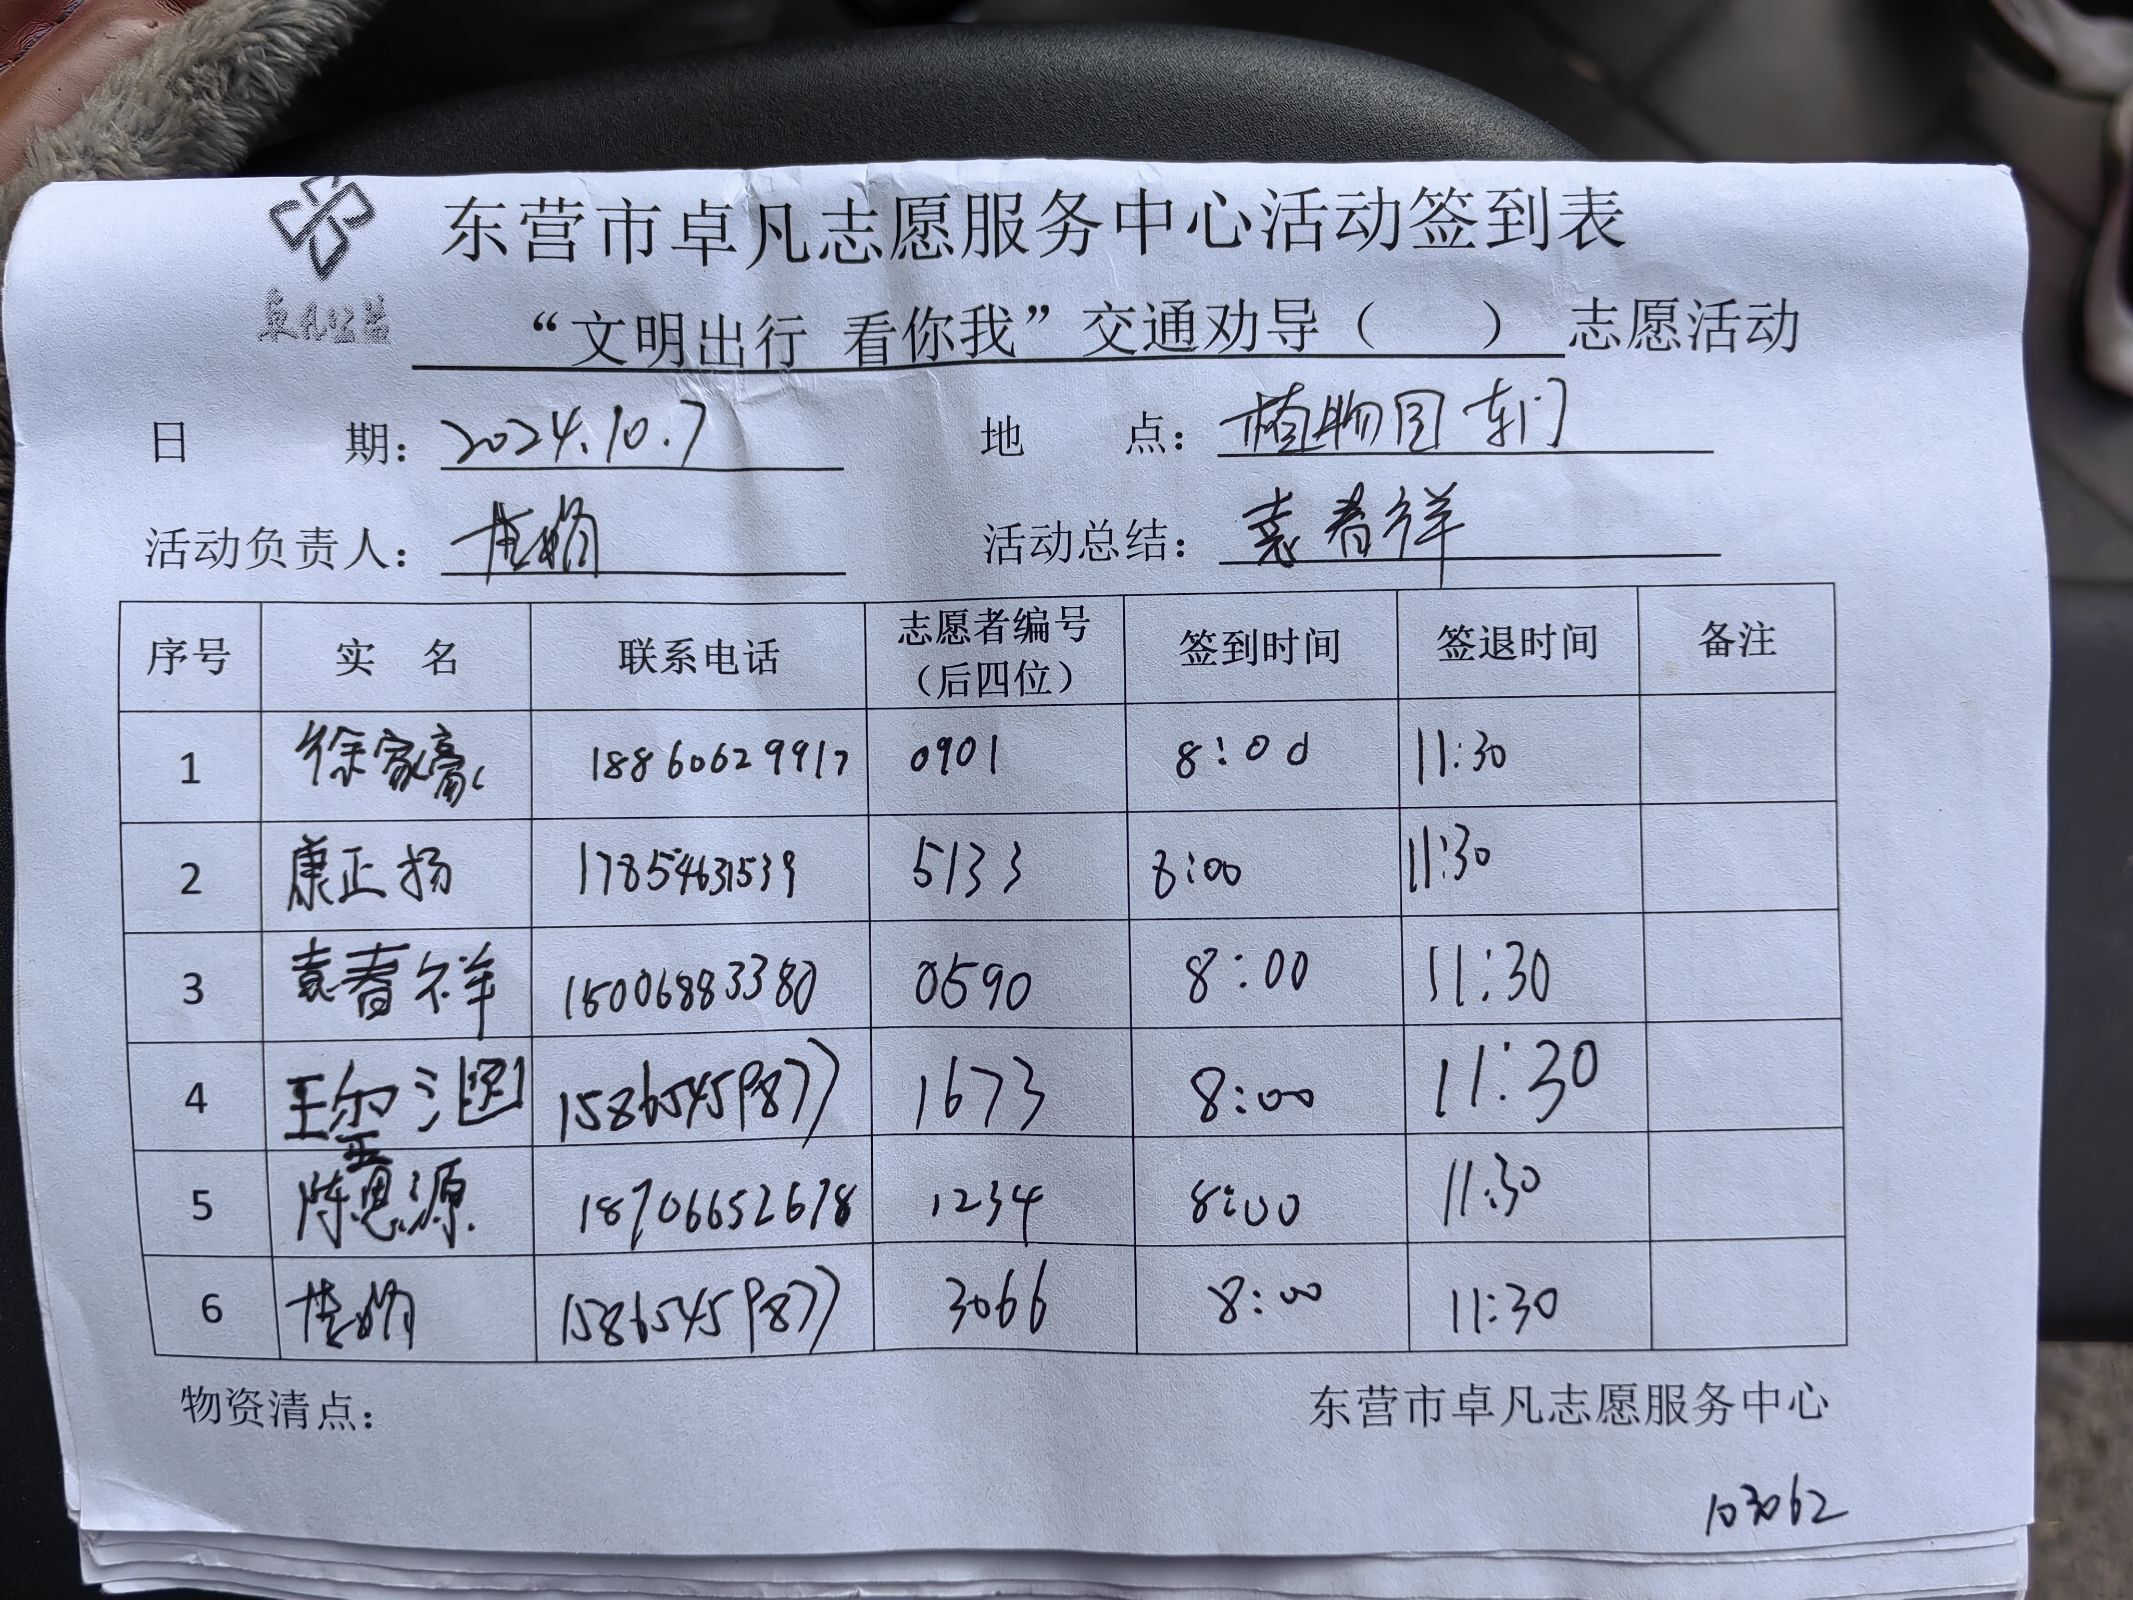 东营市卓凡志愿服务中心活动签到表
卓凡公益
“文明出行 看你我”交通劝导（ ）志愿活动
日 期：2024.10.7 地 点：植物园东门
活动负责人： 活动总结：袁春祥
序号 实 名 联系电话 志愿者编号（后四位） 签到时间 签退时间 备注
1 徐家豪 18860629917 0901 8:00 11:30
2 康正扬 17854631539 5133 8:00 11:30
3 袁春祥 15006883380 0590 8:00 11:30
4 王玺涵 15865459877 1673 8:00 11:30
5 陈思源 18706652678 1234 8:00 11:30
6 15865459877 3066 8:00 11:30
物资清点： 东营市卓凡志愿服务中心
103062